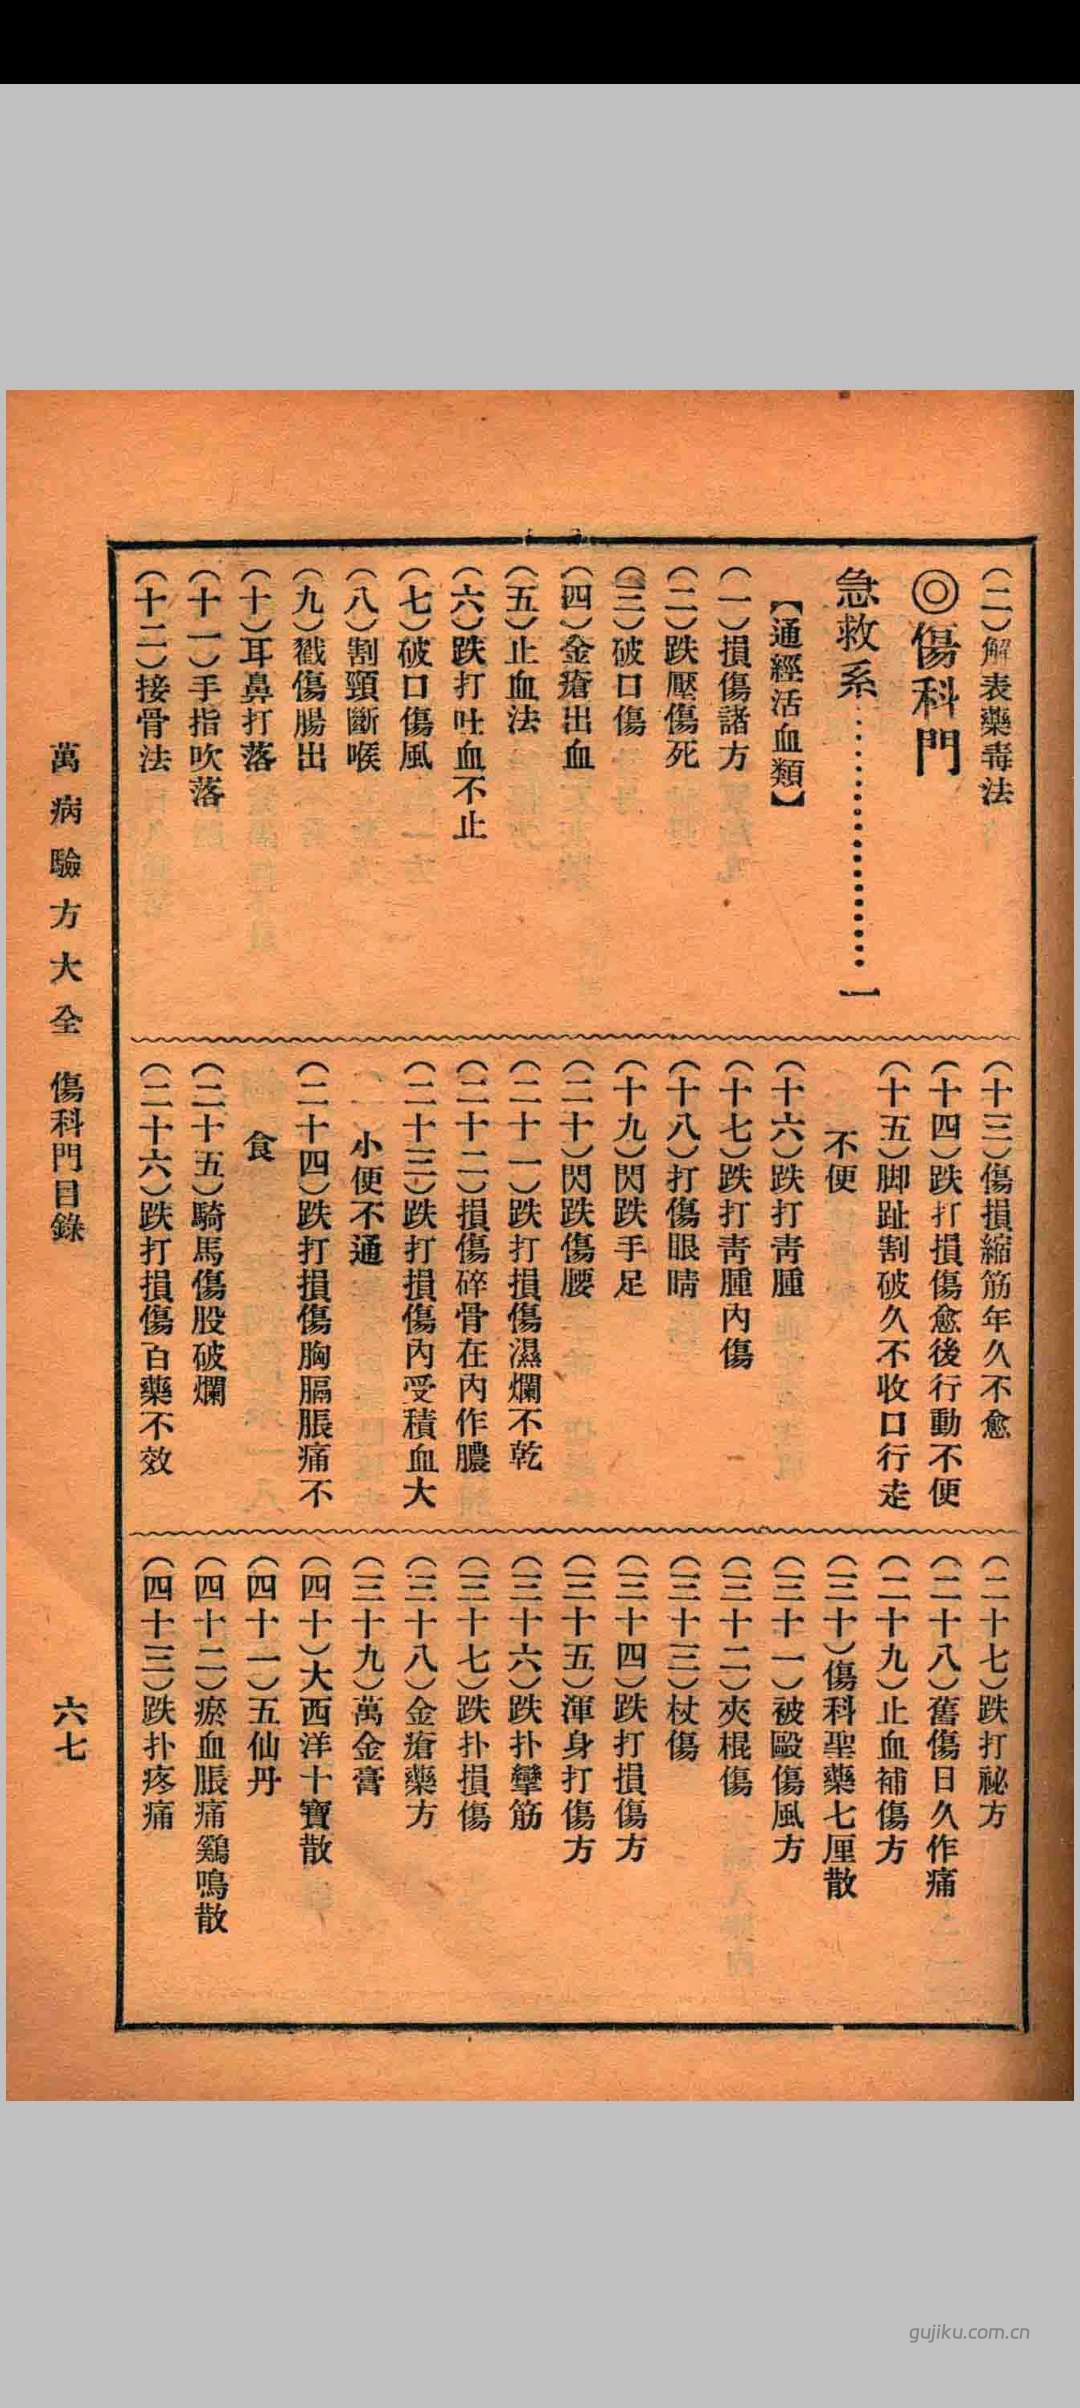 （二）解表藥毒法
◎傷科門
急救系…………………一
【通經活血類】
（一）損傷諸方
（二）跌壓傷死
（三）破口傷
（四）金瘡出血
（五）止血法
（六）跌打吐血不止
（七）破口傷風
（八）割頸斷喉
（九）戳傷腸出
（十）耳鼻打落
（十一）手指吹落
（十二）接骨法
（十三）傷損縮筋年久不愈
（十四）跌打損傷愈後行動不便
（十五）脚趾割破久不收口行走
不便
（十六）跌打靑腫
（十七）跌打靑腫內傷
（十八）打傷眼睛
（十九）閃跌手足
（二十）閃跌傷腰
（二十一）跌打損傷濕爛不乾
（二十二）損傷碎骨在內作膿
（二十三）跌打損傷內受積血大
小便不通
（二十四）跌打損傷胸膈脹痛不
食
（二十五）騎馬傷股破爛
（二十六）跌打損傷百藥不效
（二十七）跌打祕方
（二十八）舊傷日久作痛
（二十九）止血補傷方
（三十）傷科聖藥七厘散
（三十一）被毆傷風方
（三十二）夾棍傷
（三十三）杖傷
（三十四）跌打損傷方
（三十五）渾身打傷方
（三十六）跌扑攣筋
（三十七）跌扑損傷
（三十八）金瘡藥方
（三十九）萬金膏
（四十）大西洋十寶散
（四十一）五仙丹
（四十二）瘀血脹痛鷄鳴散
（四十三）跌扑疼痛
萬病驗方大全 傷科門目錄
六七
gujiku.com.cn